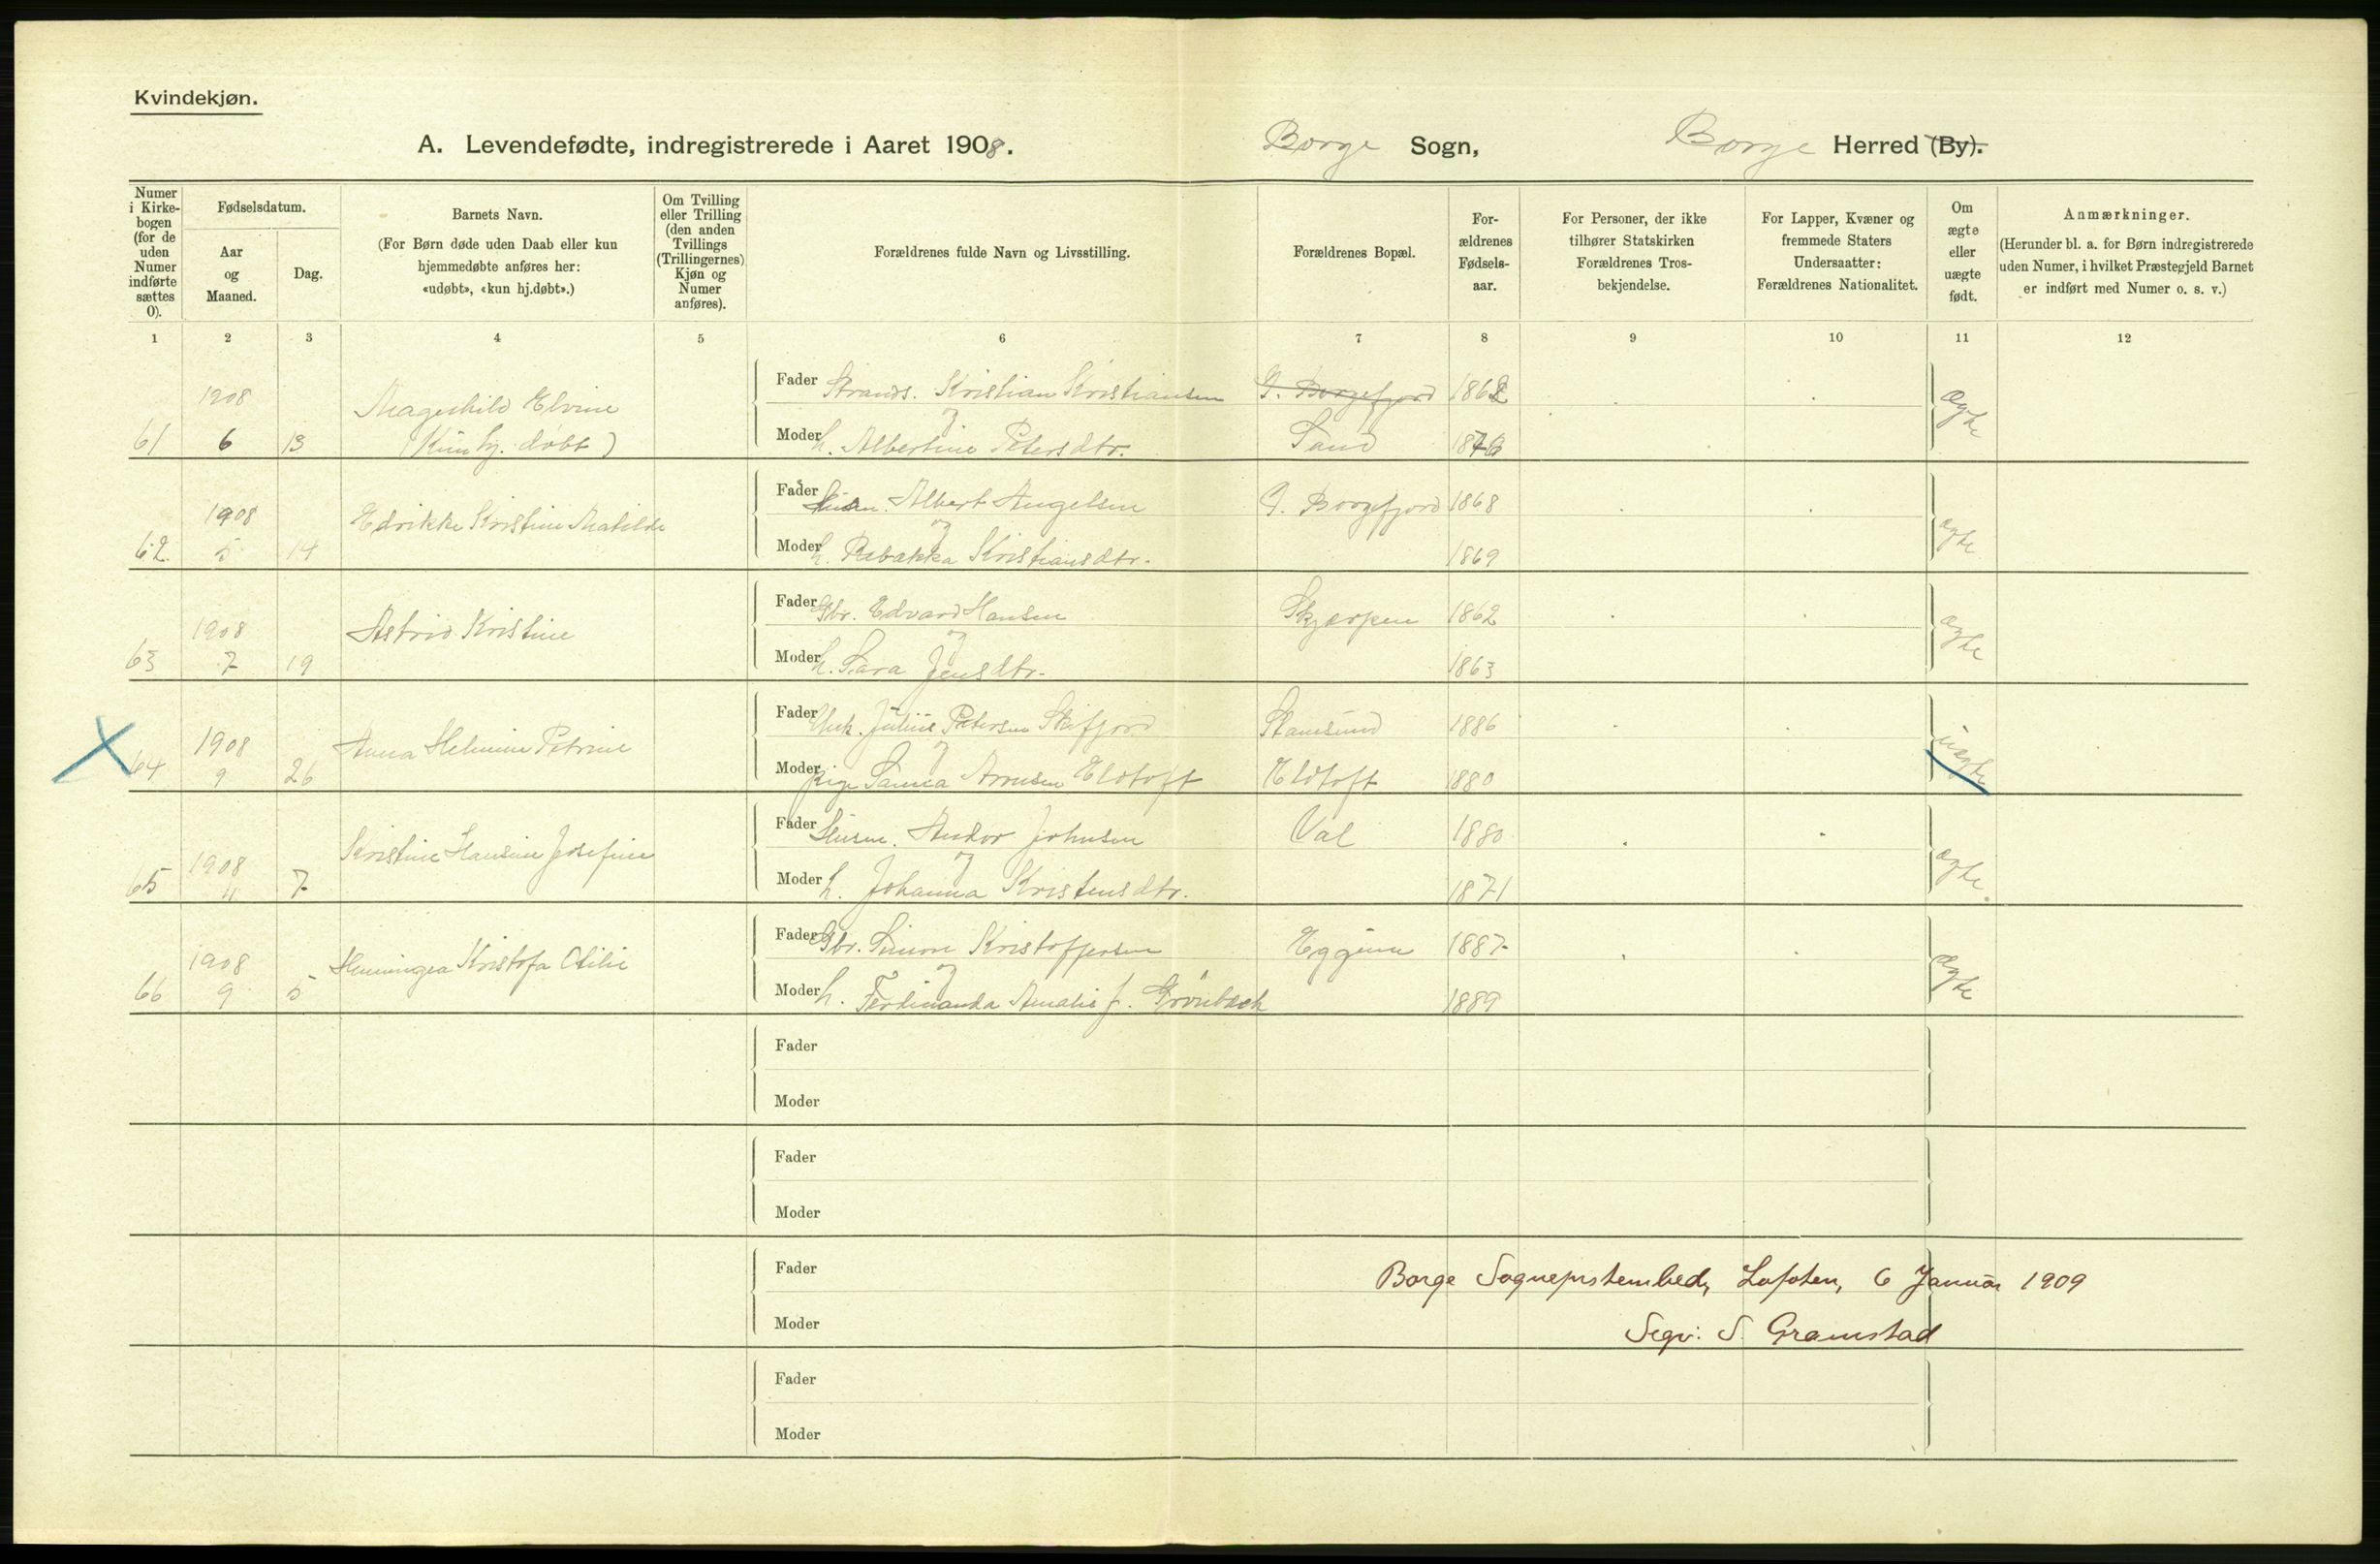 Kvindekjøn.
A. Levendefødte, indregistrerede i Aaret 1908. Borge Sogn, Borge Herred (By).
Numer i Kirkebogen (for de uden Numer indførte sættes 0).
Fødselsdatum.
Aar og Maaned.
Dag.
Barnets Navn.
(For Børn døde uden Daab eller kun hjemmedøbte anføres her: «udøbt», «kun hj.døbt».)
Om Tvilling eller Trilling (den anden Tvillings (Trillingernes) Kjøn og Numer anføres).
Forældrenes fulde Navn og Livsstilling.
Forældrenes Bopæl.
For-ældrenes Fødsels-aar.
For Personer, der ikke tilhører Statskirken Forældrenes Tros-bekjendelse.
For Lapper, Kvæner og fremmede Staters Undersaatter: Forældrenes Nationalitet.
Om ægte eller uægte født.
Anmærkninger.
(Herunder bl. a. for Børn indregistrerede uden Numer, i hvilket Præstegjeld Barnet er indført med Numer o. s. v.)
1 2 3 4 5 6 7 8 9 10 11 12
1908 Magnhild Elvine Fader Strands. Kristian Kristiansen I. Borgefjord 1862 ægte
61 6 13 (Kun hj. døbt) Moder h. Albertine Petersdtr. Sand 1876
1908 Edrikke Kristine Matilde Fader Albert Angelsen I. Borgefjord 1868 ægte
62. 5 14 Moder h. Rebakka Kristiansdtr. 1869
1908 Astrid Kristine Fader Gbr. Edvard Hansen Skjerpen 1862 ægte
63 7 19 Moder h. Sara Jensdtr. 1863
1908 Anna Helmine Petrine Fader Ungk. Julius Petersen Skifjord Stamsund 1886 uægte
64 9 26 Moder Pige Sanna Arnsen Eltoft Eltoft 1880
1908 Kristine Hansine Josefine Fader Andor Johnsen Val 1880 ægte
65 4 7 Moder h. Johanna Kristensdtr. 1871
1908 Henningea Kristofa Otilie Fader Gbr. Simon Kristoffersen Eggum 1887 ægte
66 9 5 Moder h. Ferdinanda Amalie f. Grönbæck 1889
Fader
Moder
Fader
Moder
Fader Borge Sogneprstembed, Lofoten, 6 Januar 1909
Moder Sogpr: S. Gramstad
Fader
Moder